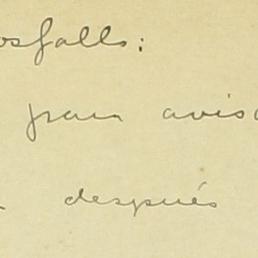 osfalls:
gran avisa
después